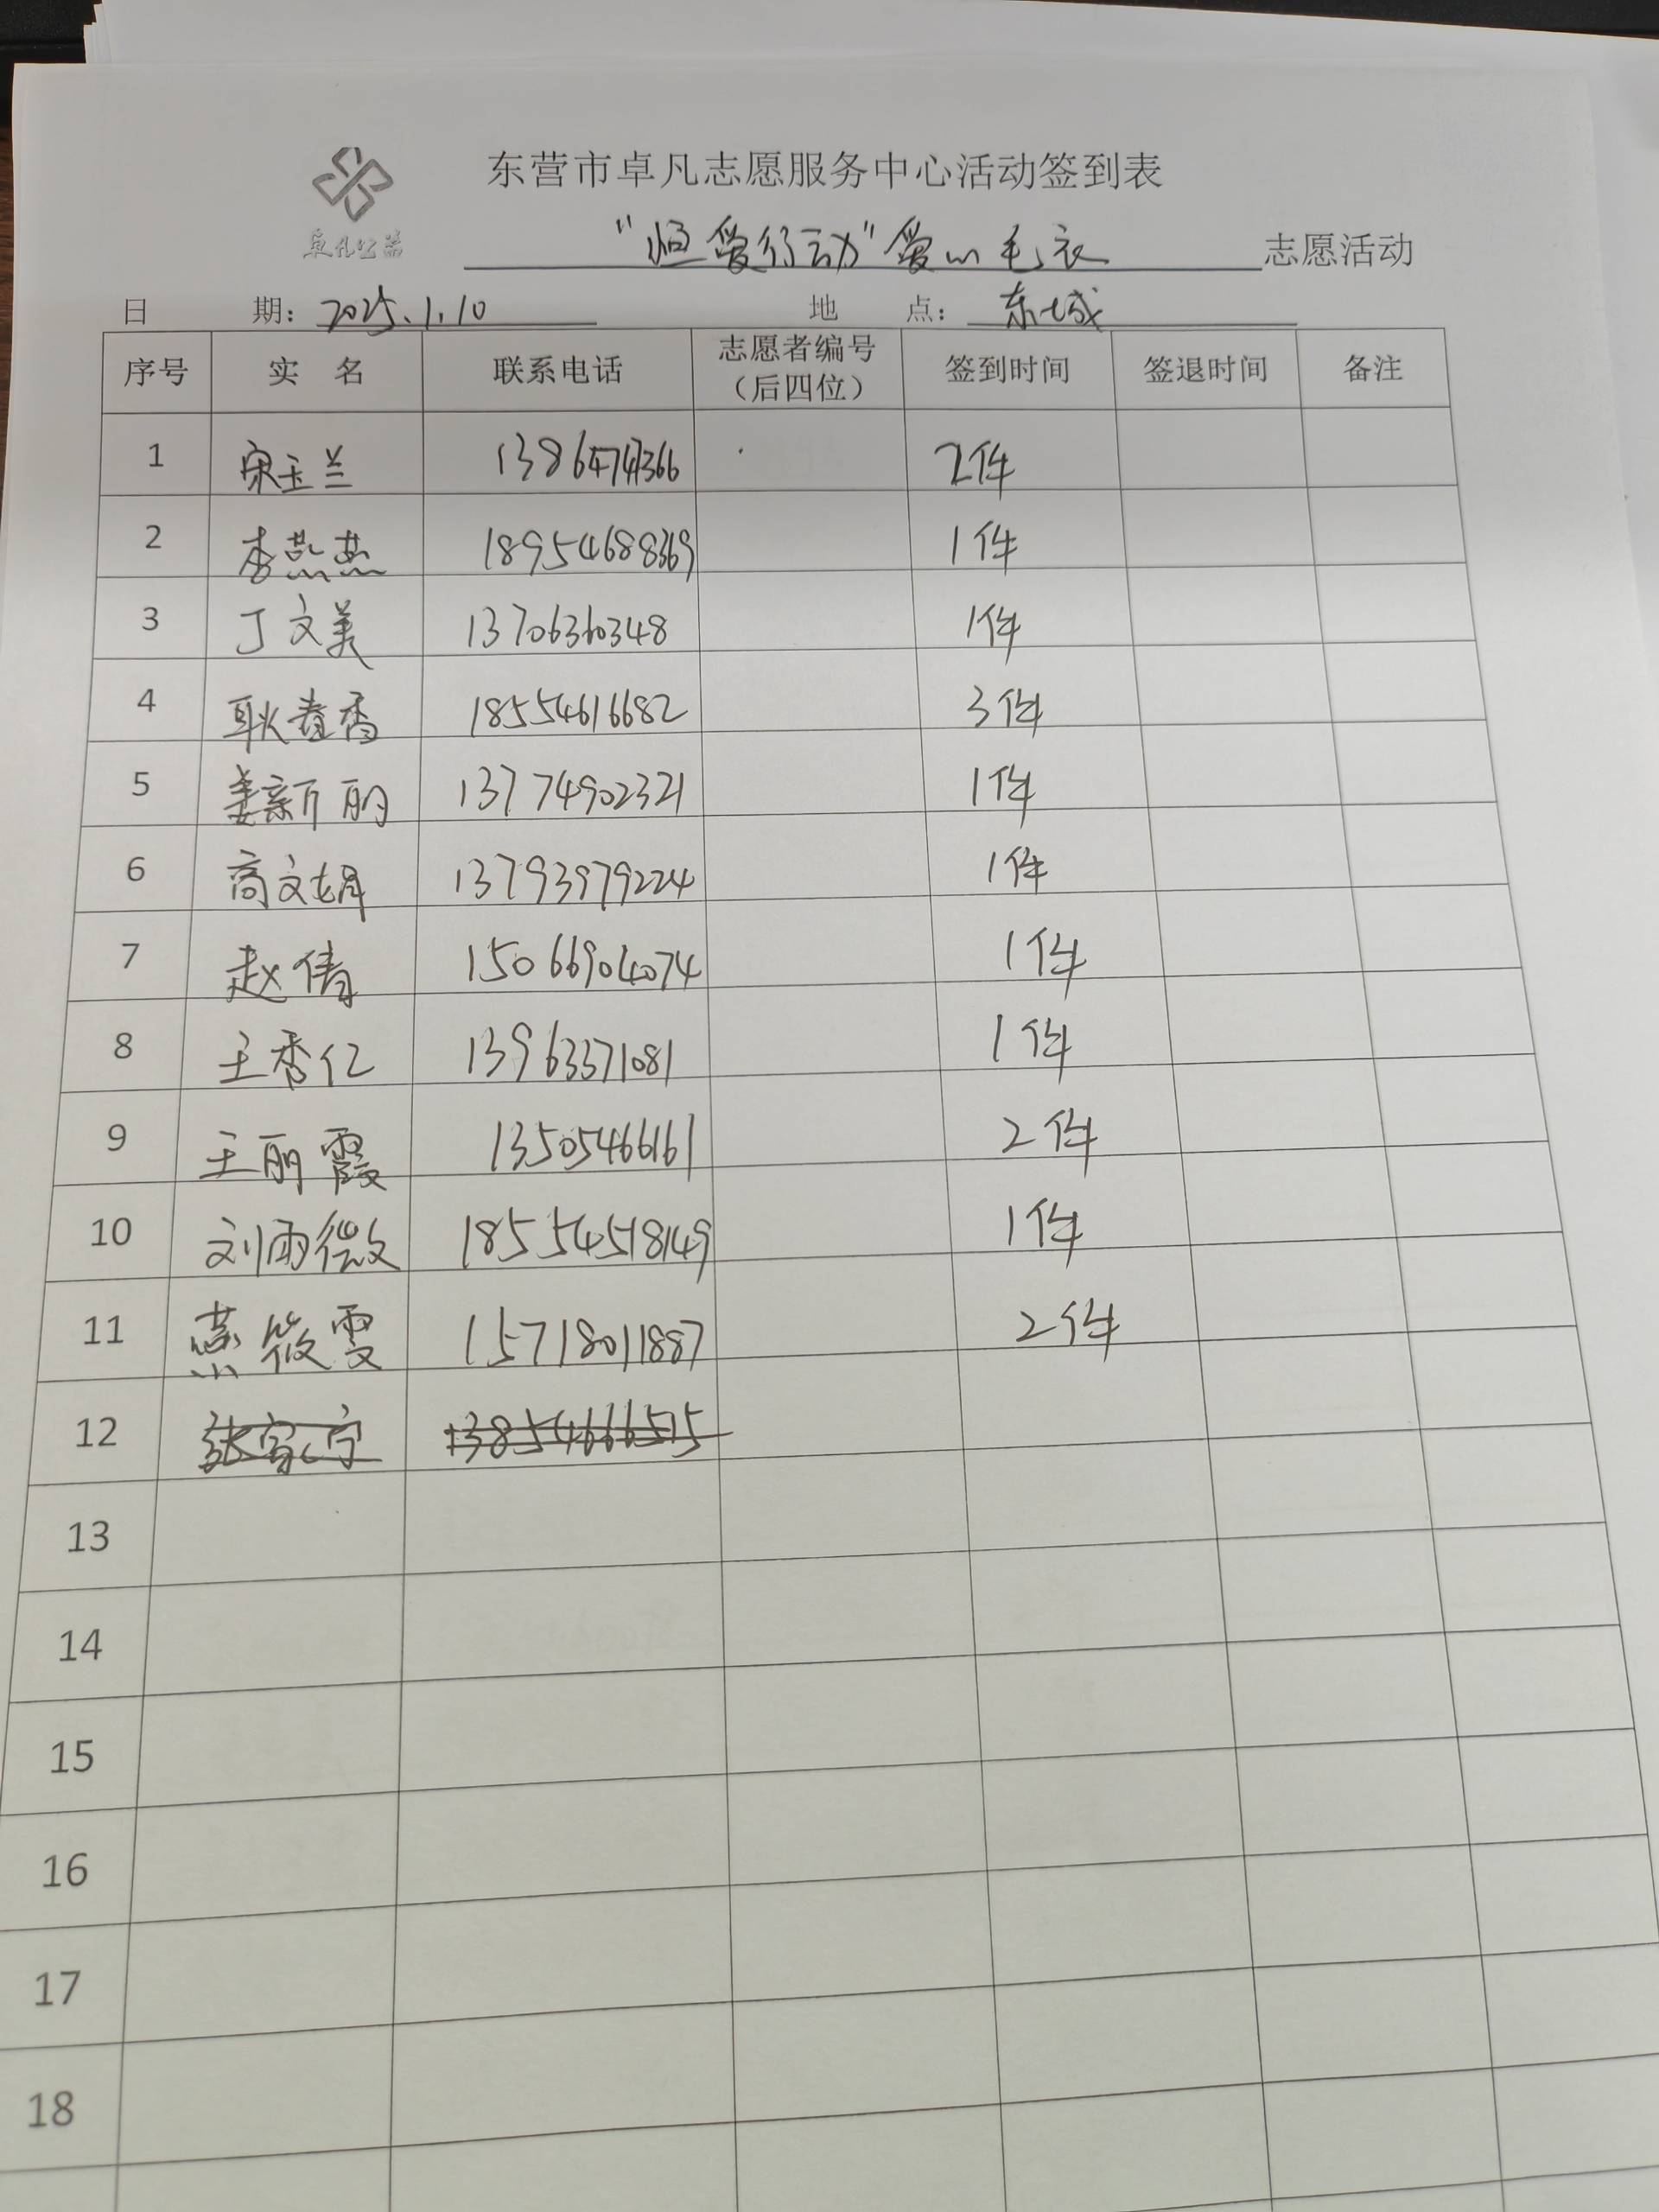 东营市卓凡志愿服务中心活动签到表
卓凡公益
“恒爱行动”爱心毛衣 志愿活动
日 期：2025.1.10 地 点：东城
序号 实 名 联系电话 志愿者编号（后四位） 签到时间 签退时间 备注
1 宋玉兰 1386474366 2件
2 李燕燕 18954688369 1件
3 丁文美 13706360348 1件
4 耿春香 18554616682 3件
5 姜新丽 13774902321 1件
6 商文娟 13793979224 1件
7 赵倩 15066904074 1件
8 王秀仁 13963371081 1件
9 王丽霞 13505466161 2件
10 刘雨微 18554518149 1件
11 燕筱雯 15718011887 2件
12
13
14
15
16
17
18